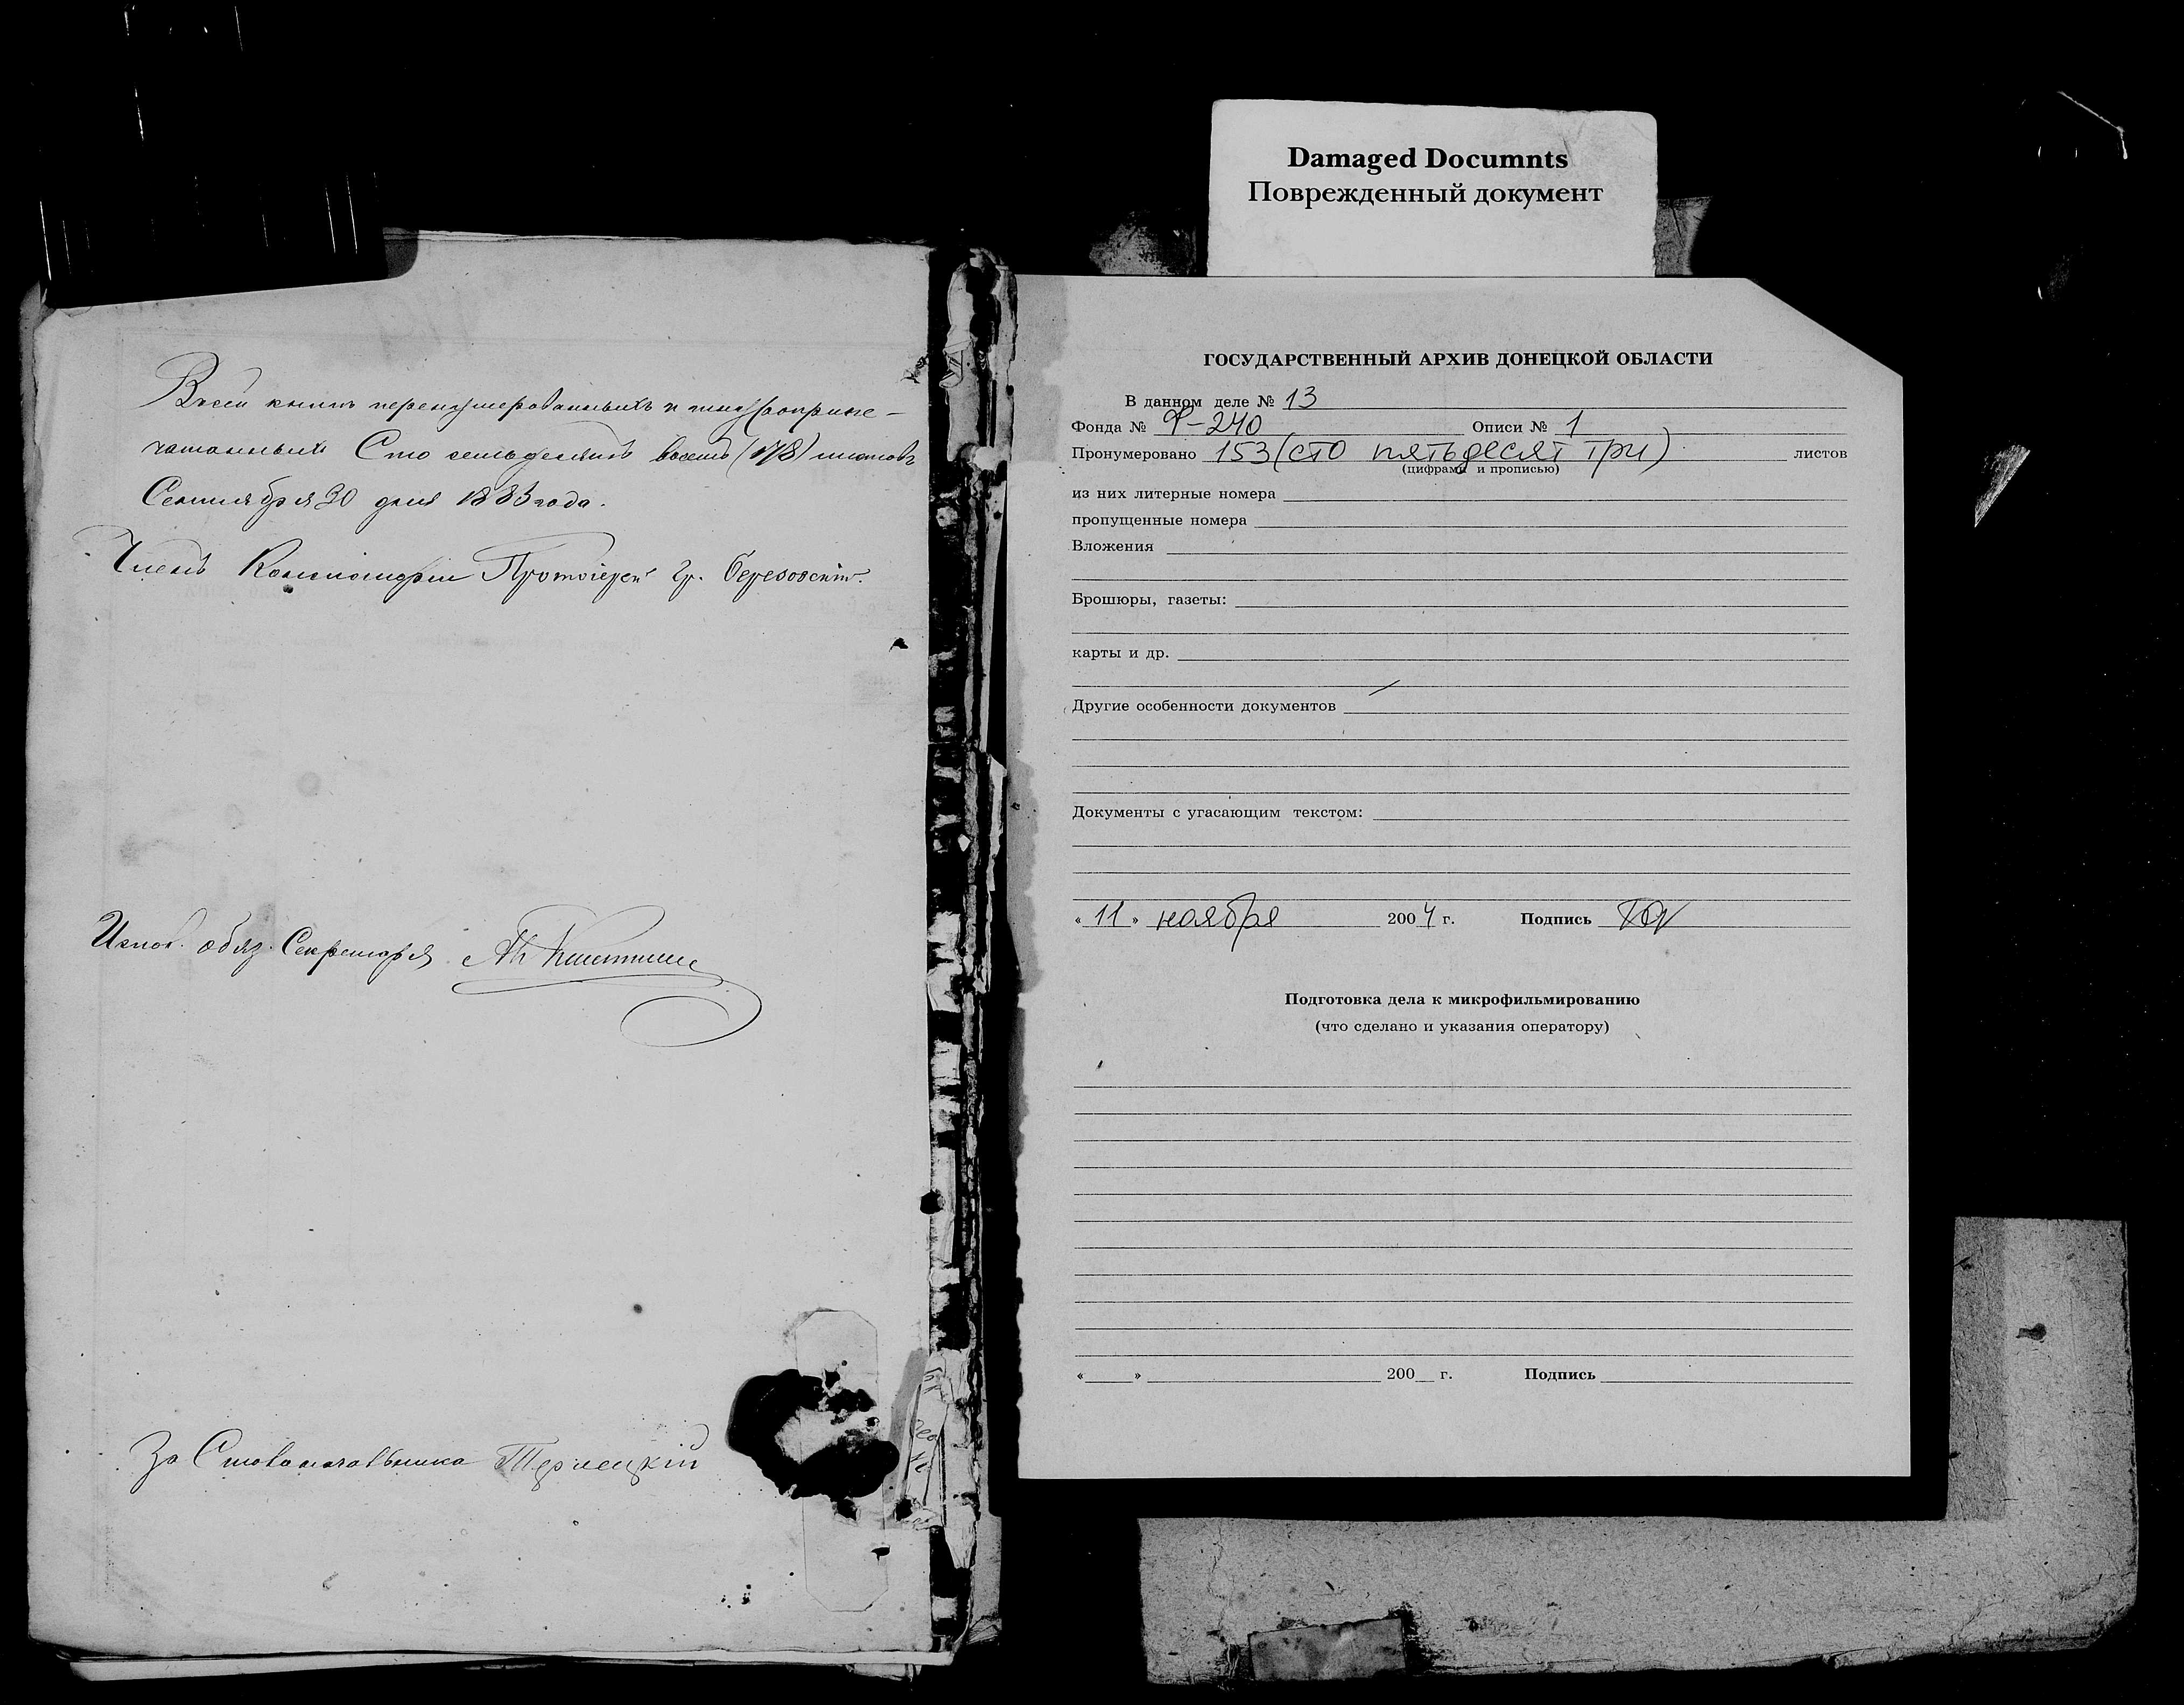 Всей книгѣ перенумерованныхъ и шнуроприпе-
чатанныхъ Сто семьдесятъ восемь (178) листовъ
Сентября 30 дня 1883 года.
Членъ Консисторіи Протоіерей Гр. Березовскій.
Испол. обяз. Секретаря
За Столоначальника Терлецкій
Damaged Documnts
Поврежденный документ
ГОСУДАРСТВЕННЫЙ АРХИВ ДОНЕЦКОЙ ОБЛАСТИ
В данном деле № 13
Фонда № Ф-240 Описи № 1
Пронумеровано 153 (сто пятьдесят три) листов
(цифрами и прописью)
из них литерные номера
пропущенные номера
Вложения
Брошюры, газеты:
карты и др.
Другие особенности документов
Документы с угасающим текстом:
« 11 » ноября 2004 г. Подпись
Подготовка дела к микрофильмированию
(что сделано и указания оператору)
« » 200 г. Подпись